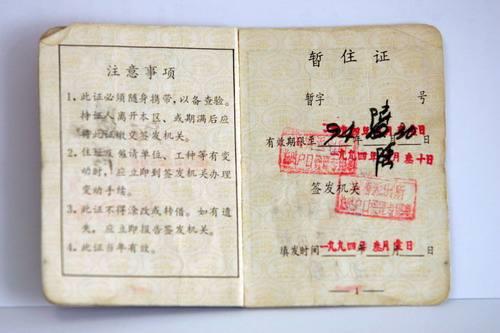 注意事项
1. 此证必须随身携带,以备查验。
持证人离开本区、或期满后应
将此证缴交签发机关。
2. 住址及邀请单位、工种等有变
动时,应立即到签发机关办理
变动手续。
3. 此证不得涂改或转借。如有遗
失,应立即报告签发机关。
4. 此证当年有效。
暂住证
暂字 号
有效期限至
一九九四年 月叁十日
签发机关
填发时间一九九四年叁月 日
1